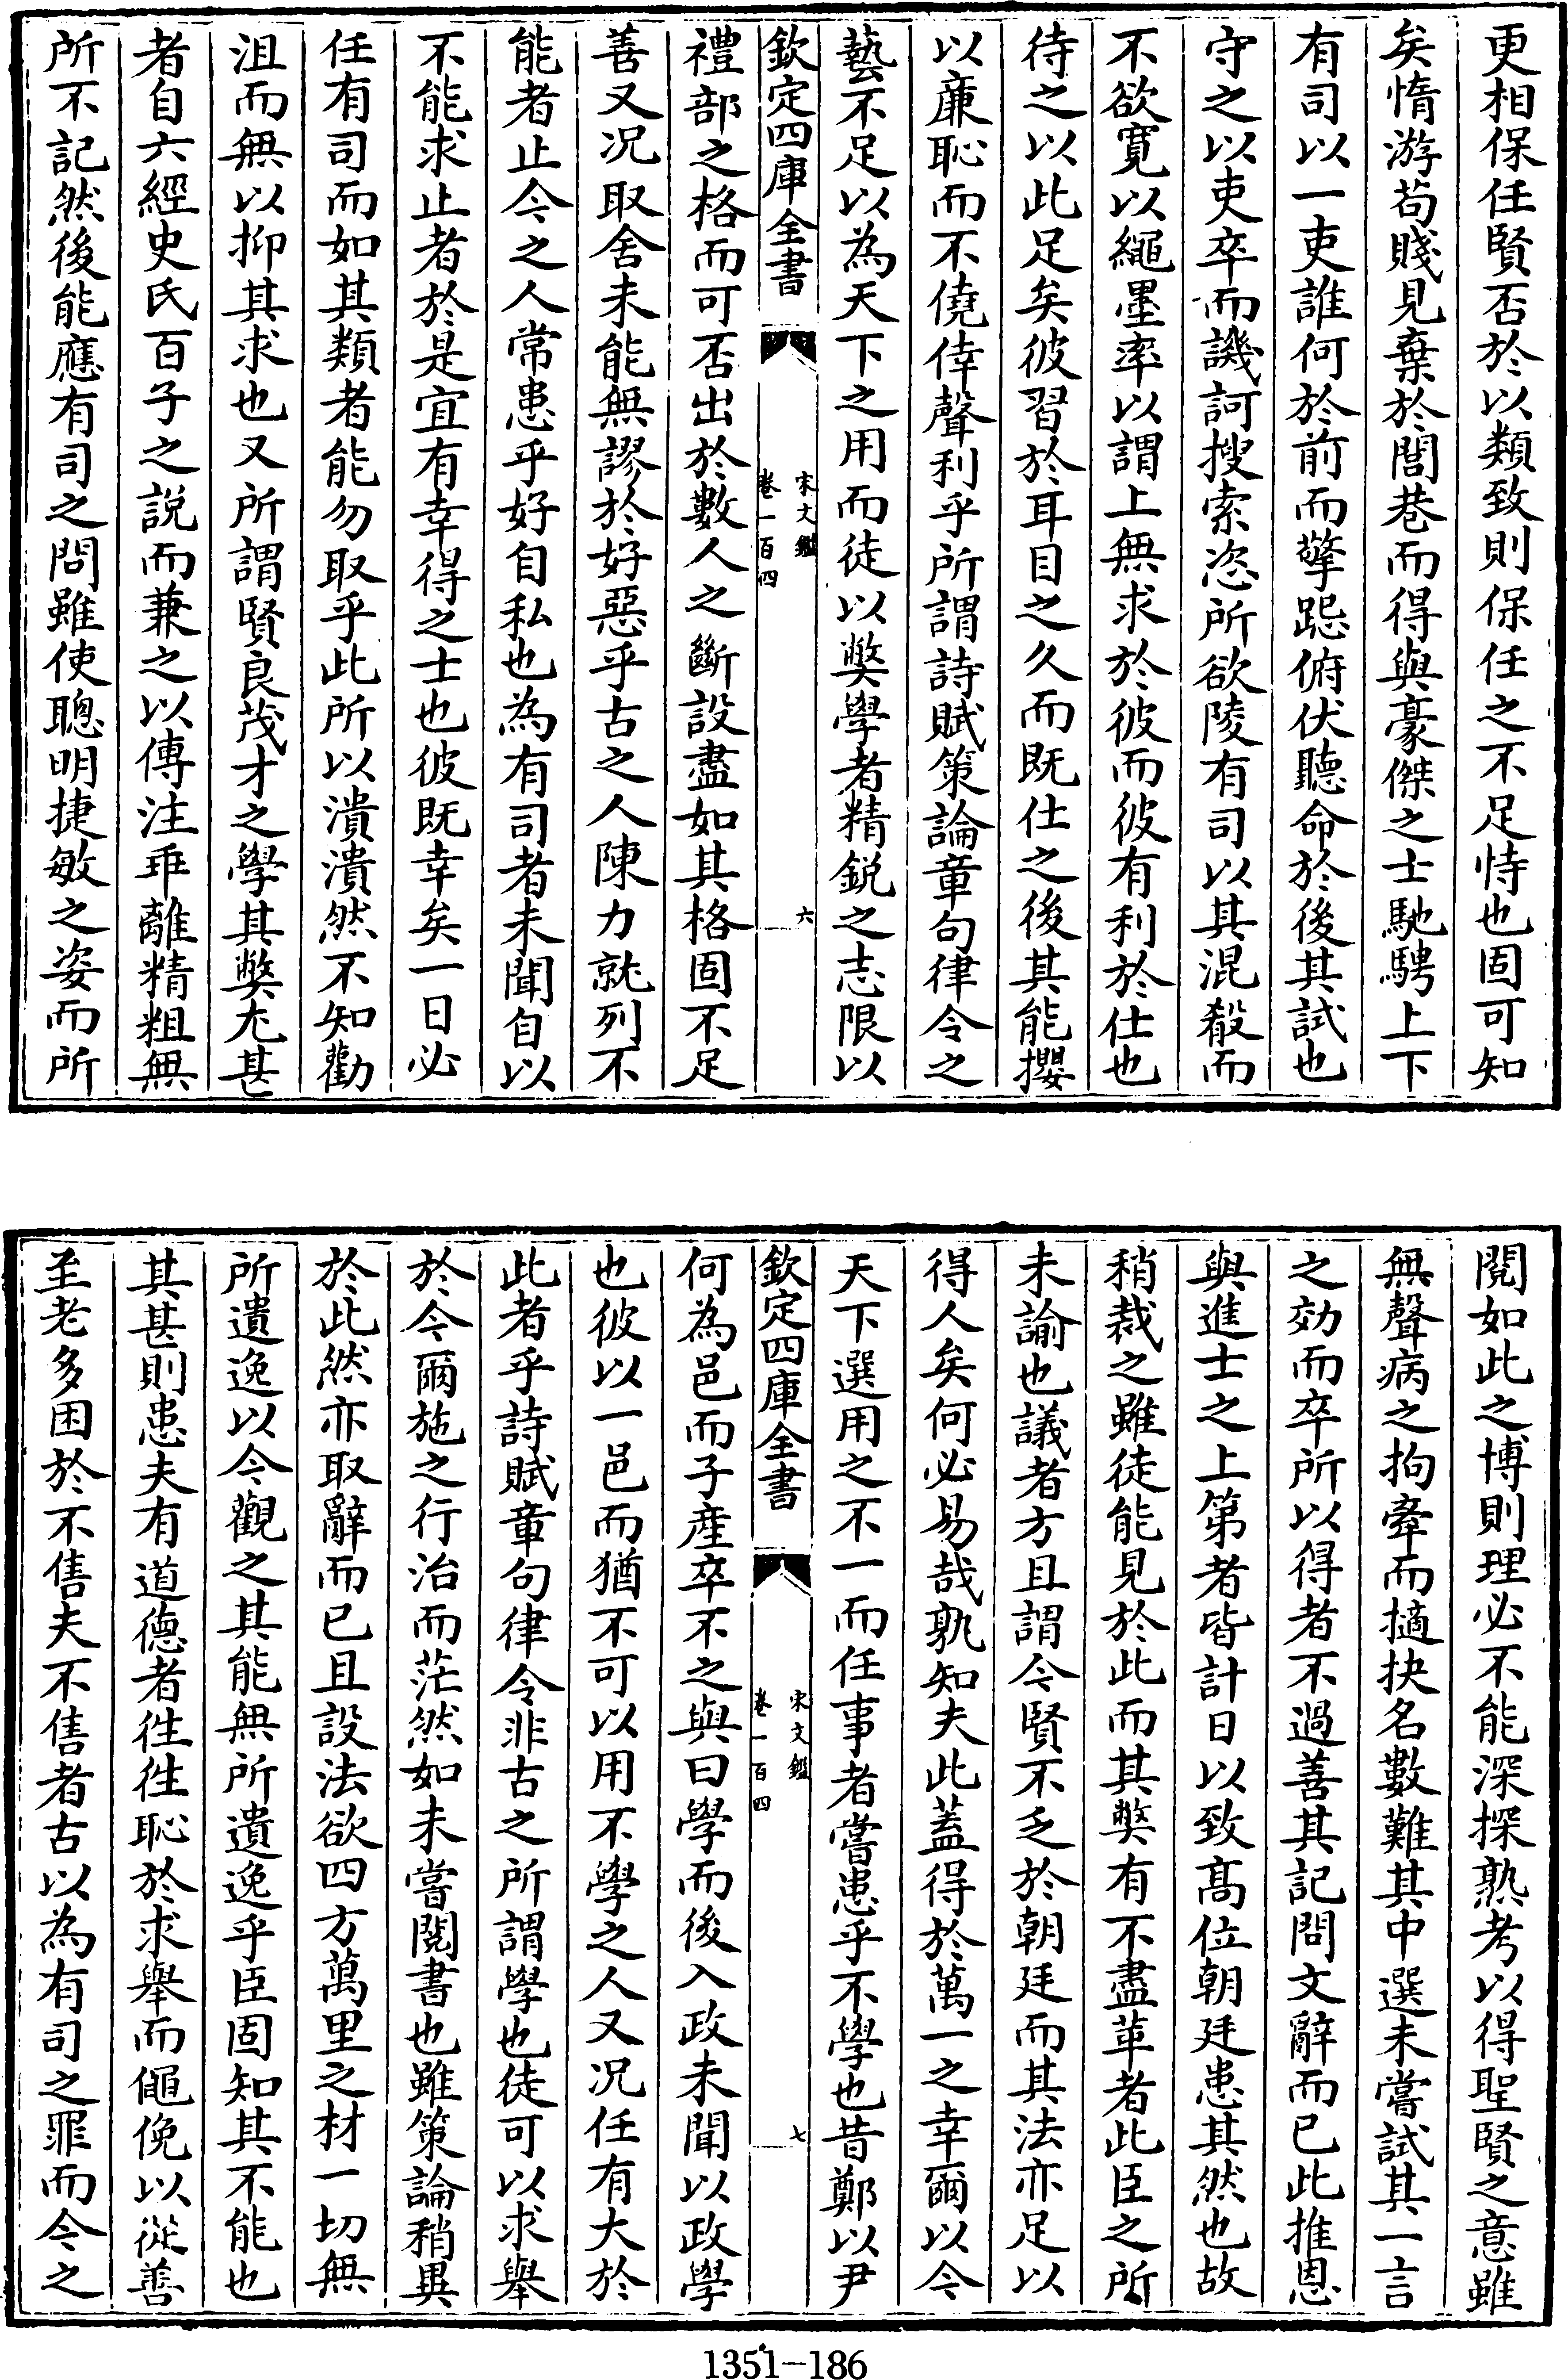 更相保任賢否於以類致則保任之不足恃也固可知
矣惰游苟賤見棄於閭巷而得與豪傑之士馳騁上下
有司以一吏誰何於前而擎跽俯伏聽命於後其試也
守之以吏卒而譏訶搜索恣所欲陵有司以其混殽而
不欲寛以繩墨率以謂上無求於彼而彼有利於仕也
待之以此足矣彼習於耳目之久而既仕之後其能攖
以亷恥而不僥倖聲利乎所謂詩賦策論章句律令之
藝不足以為天下之用而徒以獘學者精鋭之志限以
欽定四庫全書
宋文鑑
卷一百四
六
禮部之格而可否出於數人之斷設盡如其格固不足
善又况取舍未能無謬於好惡乎古之人陳力就列不
能者止今之人常患乎好自私也為有司者未聞自以
不能求止者於是宜有幸得之士也彼既幸矣一日必
任有司而如其類者能勿取乎此所以潰潰然不知勸
沮而無以抑其求也又所謂賢良茂才之學其獘尤甚
者自六經史氏百子之說而兼之以傳注乖離精粗無
所不記然後能應有司之問雖使聰明捷敏之姿而所
閱如此之博則理必不能深探熟考以得聖賢之意雖
無聲病之拘牽而擿抉名數難其中選未嘗試其一言
之効而卒所以得者不過善其記問文辭而已此推恩
與進士之上第者皆計日以致髙位朝廷患其然也故
稍裁之雖徒能見於此而其獘有不盡革者此臣之所
未諭也議者方且謂今賢不乏於朝廷而其法亦足以
得人矣何必易哉孰知夫此蓋得於萬一之幸爾以今
天下選用之不一而任事者嘗患乎不學也昔鄭以尹
欽定四庫全書
宋文鑑
卷一百四
七
何為邑而子産卒不之與曰學而後入政未聞以政學
也彼以一邑而猶不可以用不學之人又况任有大於
此者乎詩賦章句律令非古之所謂學也徒可以求舉
於今爾施之行治而茫然如未嘗閱書也雖策論稍異
於此然亦取辭而已且設法欲四方萬里之材一切無
所遺逸以今觀之其能無所遺逸乎臣固知其不能也
其甚則患夫有道德者徃徃恥於求舉而僶俛以從善
至老多困於不售夫不售者古以為有司之罪而今之
1351-186